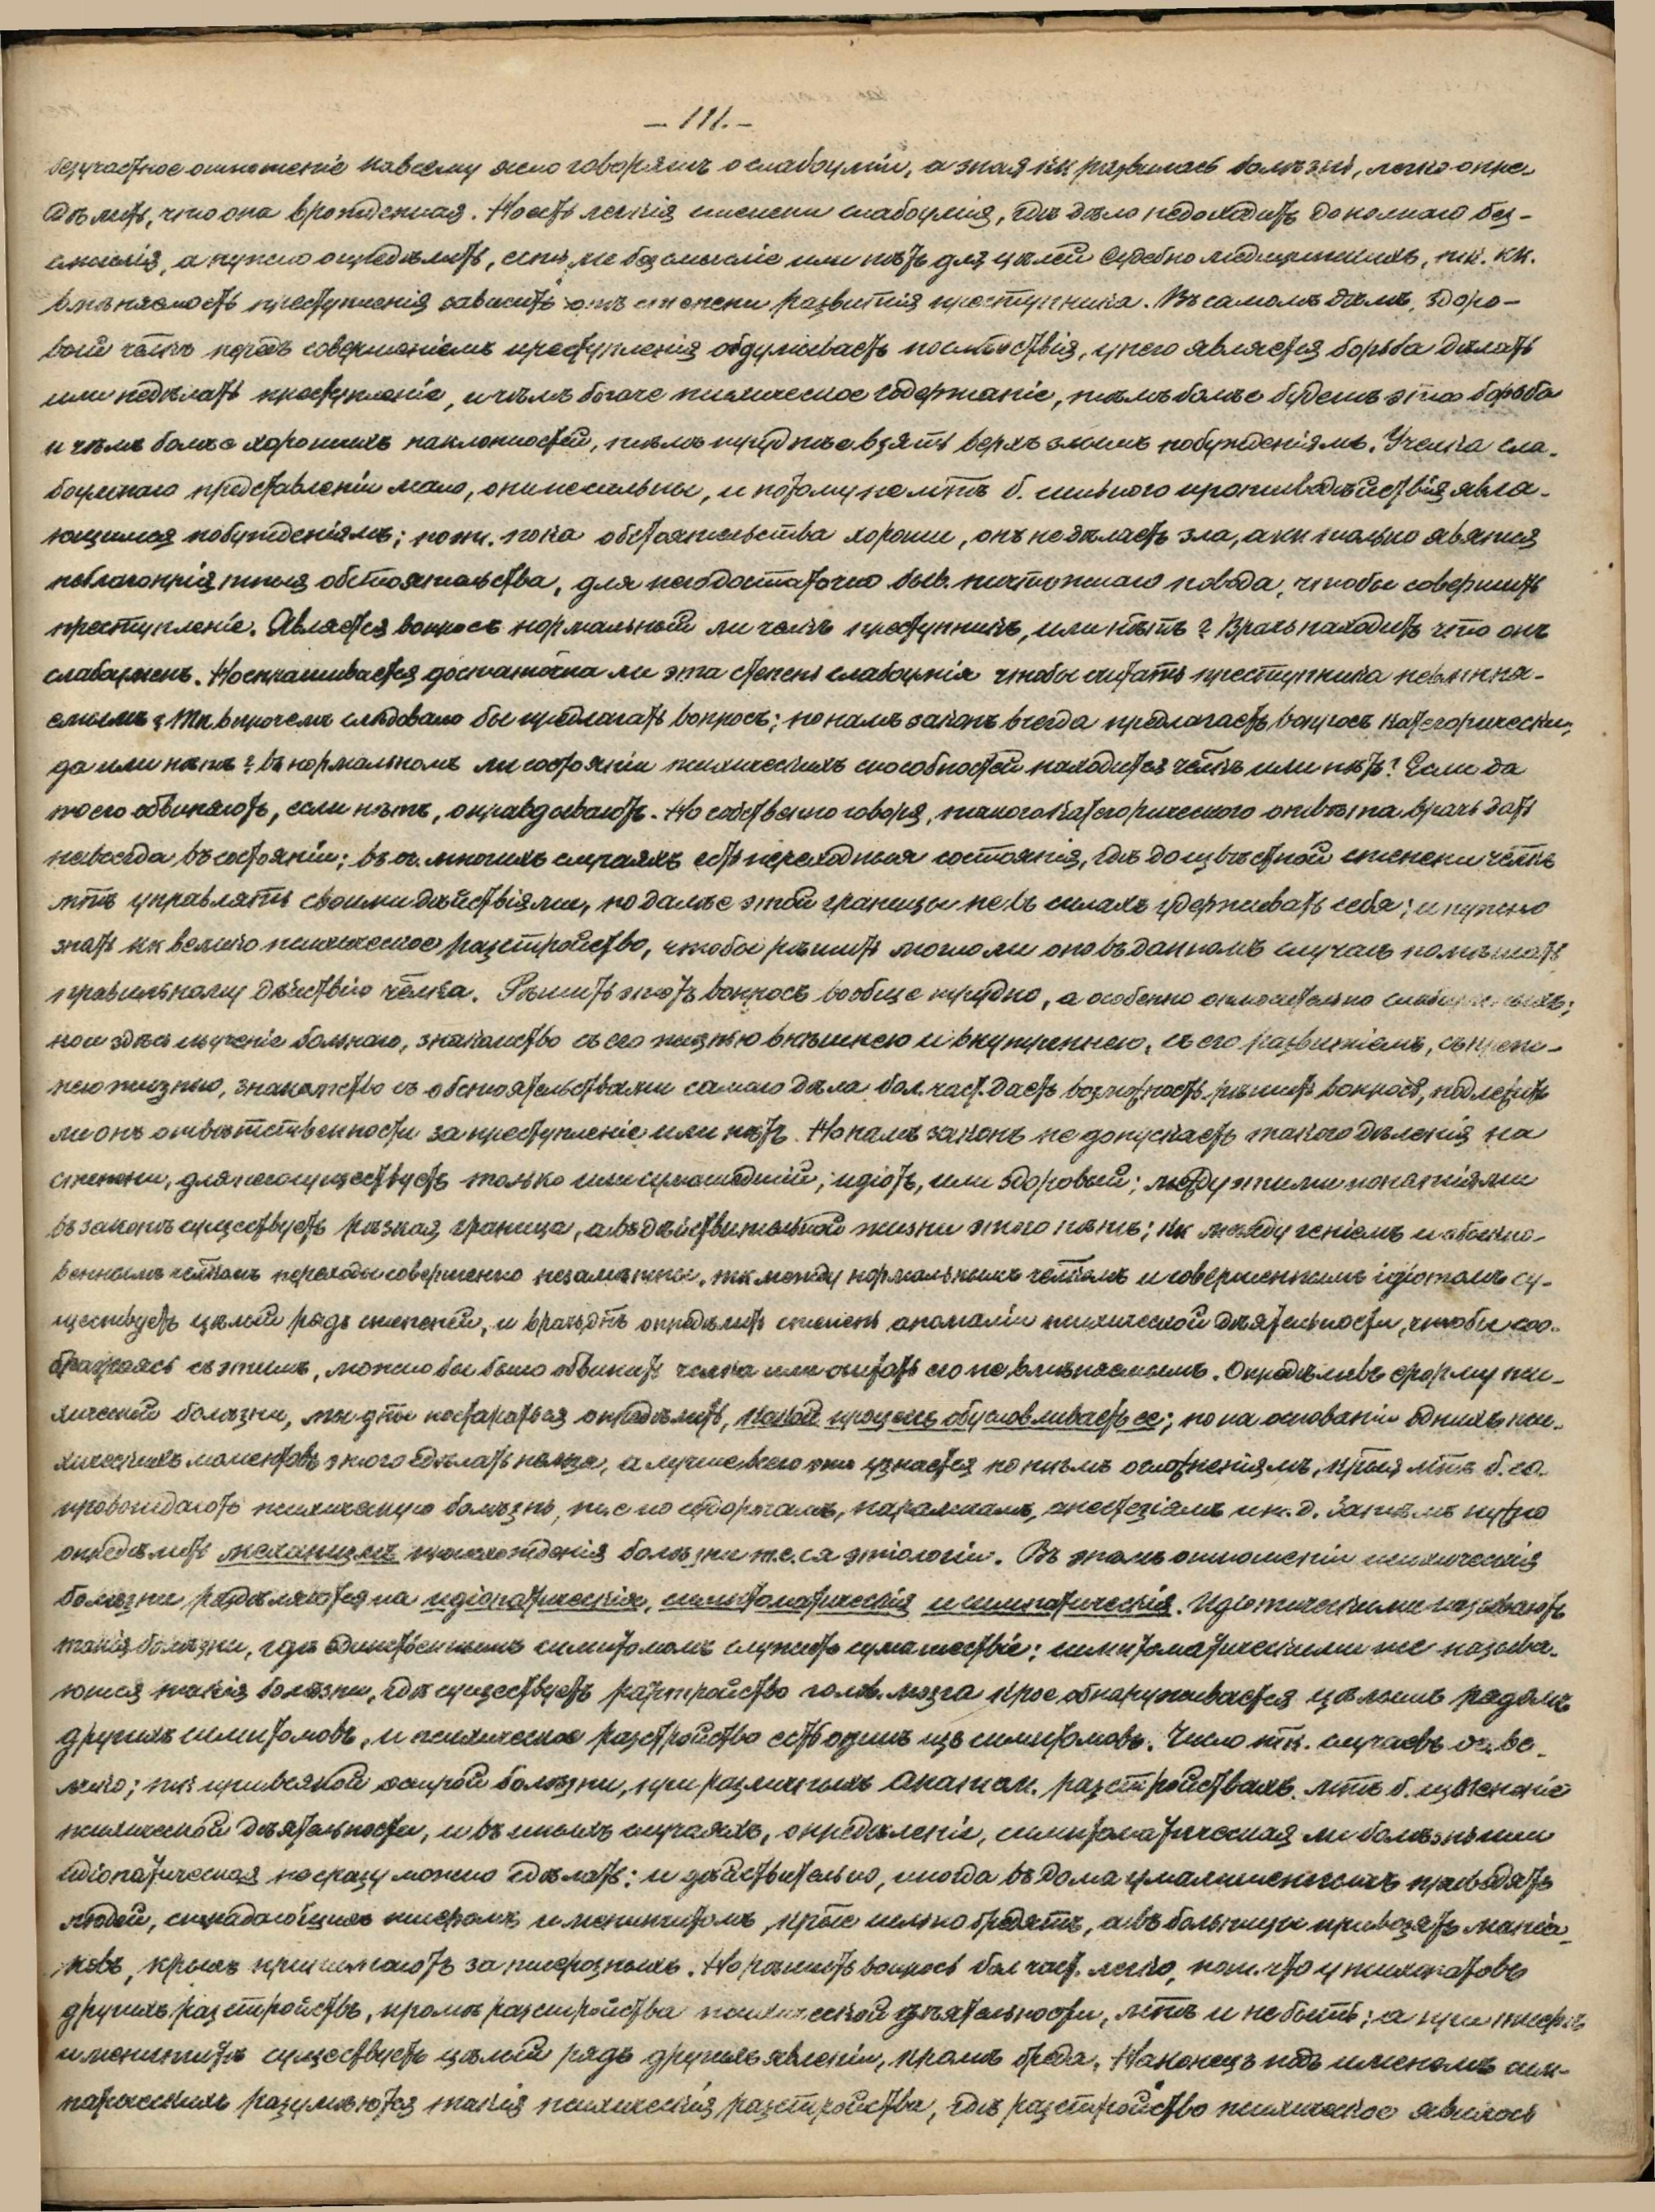 — 111. —
безучастное отношеніе ко всему ясно говорятъ о слабоуміи, а зная кк развилась болѣзнь, легко опре-
дѣлить, что она врожденная. Но есть легкія степени слабоумія, гдѣ дѣло не доходитъ до полнаго без-
смыслія, а нужно опредѣлить, есть ли безсмысліе или нѣтъ для цѣлей судебно медицинскихъ, тк. кк.
вмѣняемость преступленія зависитъ отъ степени развитія преступника. Въ самомъ дѣлѣ, здоро-
вый челкъ передъ совершеніемъ преступленія обдумываетъ послѣдствія, у него является борьба дѣлать
или не дѣлать преступленіе, и чѣмъ богаче психическое содержаніе, тѣмъ болѣе будетъ эта борьба
и чѣмъ болѣе хорошихъ наклонностей, тѣмъ труднѣе взять верхъ злымъ побужденіямъ. У челка сла-
боумнаго представленій мало, они не сильны, и потому не мтъ б. сильнаго противодѣйствія явля-
ющимся побужденіямъ; пот. пока обстоятельства хороши, онъ не дѣлаетъ зла, а кк только явятся
неблагопріятныя обстоятельства, для него достаточно быв. ничтожнаго повода, чтобы совершить
преступленіе. Является вопросъ нормальный ли челкъ преступникъ, или нѣтъ? Врачъ находитъ что онъ
слабоуменъ. Но спрашивается достаточна ли эта степень слабоумія чтобы считать преступника невмѣня-
емымъ? Тк впрочемъ слѣдовало бы предлагать вопросъ; но намъ законъ всегда предлагаетъ вопросъ категорически,
да или нѣтъ? въ нормальномъ ли состояніи психическихъ способностей находится челкъ или нѣтъ? Если да
то его обвиняютъ, если нѣтъ, оправдываютъ. Но собственно говоря, такого категорическаго отвѣта врачъ дать
не всегда въ состояніи; въ оч. многихъ случаяхъ есть переходныя состоянія, гдѣ до извѣстной степени челкъ
мтъ управлять своими дѣйствіями, но далѣе этой границы не въ силахъ удерживать себя; и нужно
знать кк велико психическое разстройство, чтобы рѣшить могло ли оно въ данномъ случаѣ помѣшать
правильному дѣйствію челка. Рѣшить этотъ вопросъ вообще трудно, а особенно относительно слабоумныхъ;
но и здѣсь изученіе больнаго, знакомство съ его жизнью внѣшнею и внутреннею, съ его развитіемъ, съ преж-
нею жизнью, знакомство съ обстоятельствами самаго дѣла бол. част. даетъ возможность рѣшить вопросъ, подлежитъ
ли онъ отвѣтственности за преступленіе или нѣтъ. Но намъ законъ не допускаетъ такого дѣленія на
степени, для него существуетъ только или сумашедшій, идіотъ, или здоровый; между этими понятіями
въ законѣ существуетъ рѣзкая граница, а въ дѣйствительной жизни этого нѣтъ; кк между геніемъ и обыкно-
веннымъ челкомъ переходы совершенно незамѣтны, тк между нормальнымъ челкомъ и совершеннымъ идіотомъ су-
ществуетъ цѣлый рядъ степеней, и врачъ дтъ опредѣлить степень аномаліи психической дѣятельности, чтобы соо-
бразуясь съ этимъ, можно бы было обвинить челка или считать его невмѣняемымъ. Опредѣливъ форму пси-
хической болѣзни, мы дты постараться опредѣлить, какой процессъ обусловливаетъ ее; но на основаніи однихъ пси-
хическихъ моментовъ этого сдѣлать нельзя, а лучше всего это узнается по тѣмъ осложненіямъ, крыя мтъ б. со-
провождаютъ психическую болѣзнь, т.е. по судорогамъ, параличамъ, анестезіямъ и т. д. Затѣмъ нужно
опредѣлить механизмъ происхожденія болѣзни т.е. ея этіологіи. Въ этомъ отношеніи психическія
болѣзни раздѣляются на идіопатическія, симптоматическія и симпатическія. Идіотическими называютъ
такія болѣзни, гдѣ единственнымъ симптомомъ служитъ сумашествіе; симптоматическими же называ-
ются такія болѣзни, гдѣ существуетъ разстройство голов. мозга крое обнаруживается цѣлымъ рядомъ
другихъ симптомовъ, и психическое разстройство есть одинъ изъ симптомовъ. Число тк. случаевъ оч. ве-
лико; тк при всякой острой болѣзни, при различныхъ анатом. разстройствахъ мтъ б. измѣненіе
психической дѣятельности, и въ иныхъ случаяхъ, опредѣленіе, симптоматическая ли болѣзнь или
идіопатическая не сразу можно сдѣлать; и дѣйствительно, иногда въ дома умалишенныхъ приводятъ
людей, страдающихъ тифомъ и менингитомъ, крые сильно бредятъ, а въ больницы привозятъ маніа-
ковъ, крыхъ принимаютъ за тифозныхъ. Но рѣшить вопросъ бол част. легко, пот. что у психопатовъ
другихъ разстройствъ, кромѣ разстройства психической дѣятельности, мтъ и не быть; а при тифѣ
и менингитѣ существуетъ цѣлый рядъ другихъ явленій, кромѣ бреда. Наконецъ подъ именемъ сим-
патическихъ разумѣются такія психическія разстройства, гдѣ разстройство психическое явилось